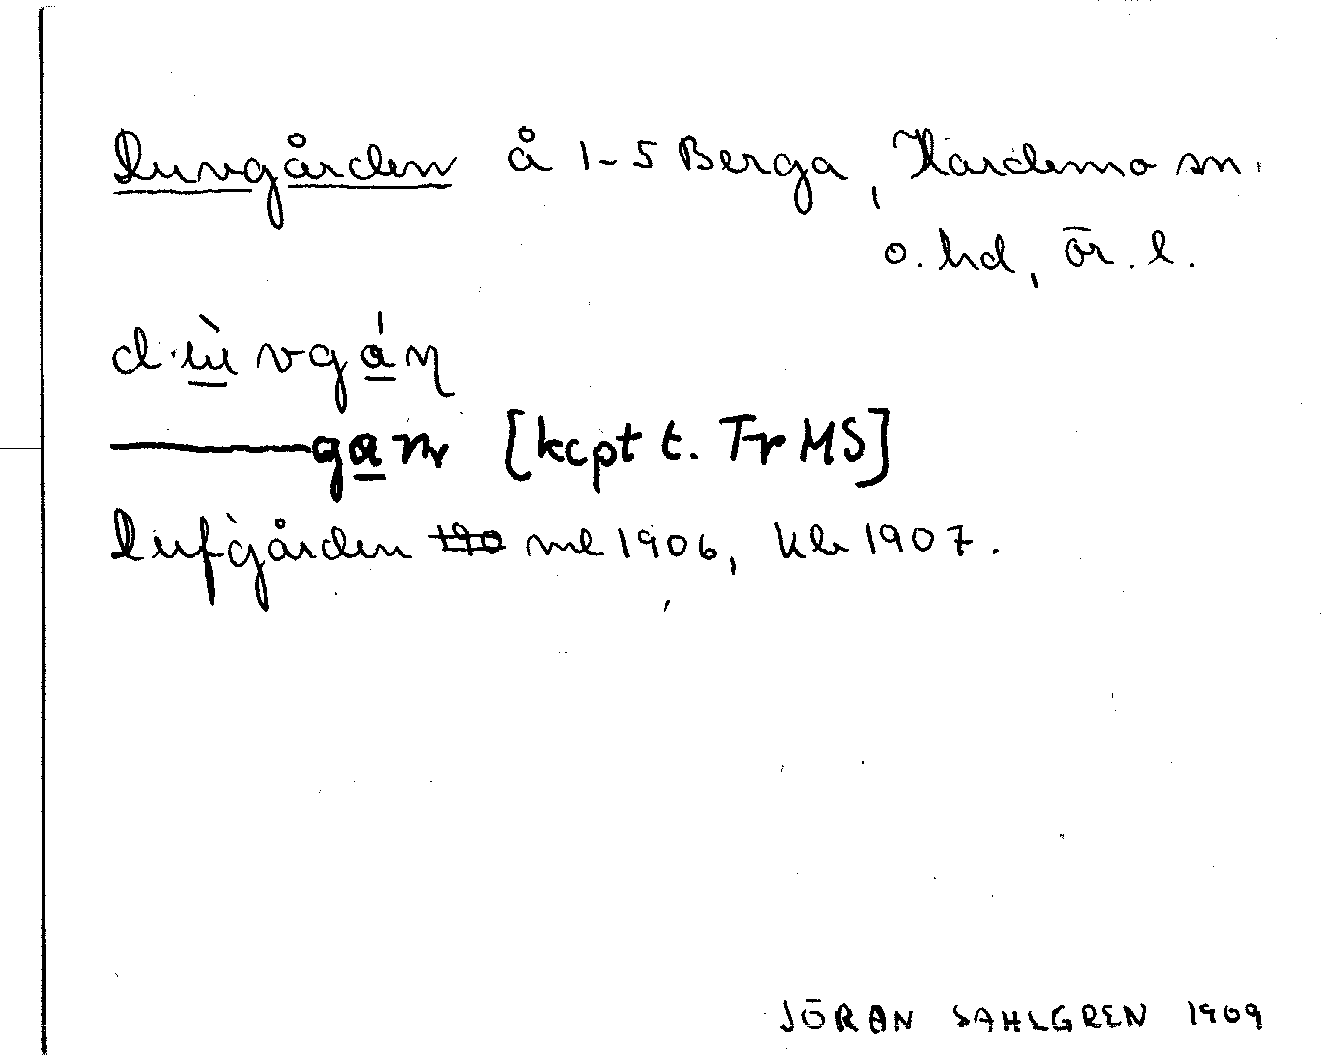 Duvgården å 1-5 Berga, Hardemo sn.
ö. hd, ör. l.
dùvgáɳ
gaɳ [kcpt t. Tr MS]
Dufgården ml 1906, kb 1907.
JÖRAN SAHLGREN 1909